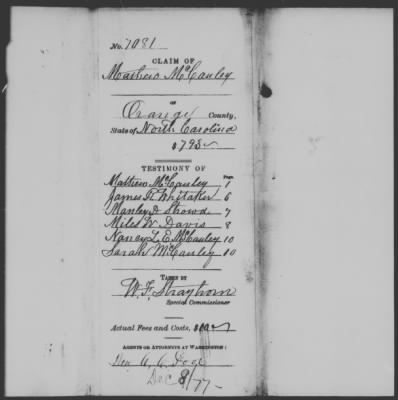 No. 7081
CLAIM OF
Mathew McCauley
OF
Orange County,
State of North Carolina
$793
TESTIMONY OF
Page.
Mathew McCauley 1
James F. Whitaker 6
Manley D. Strowd 7
Miles W. Davis 8
Nancy L. E. McCauley 10
Sarah McCauley 10
TAKEN BY
W. F. Strayhorn
Special Commissioner
Actual Fees and Costs,
AGENTS OR ATTORNEYS AT WASHINGTON:
Dec 8/77